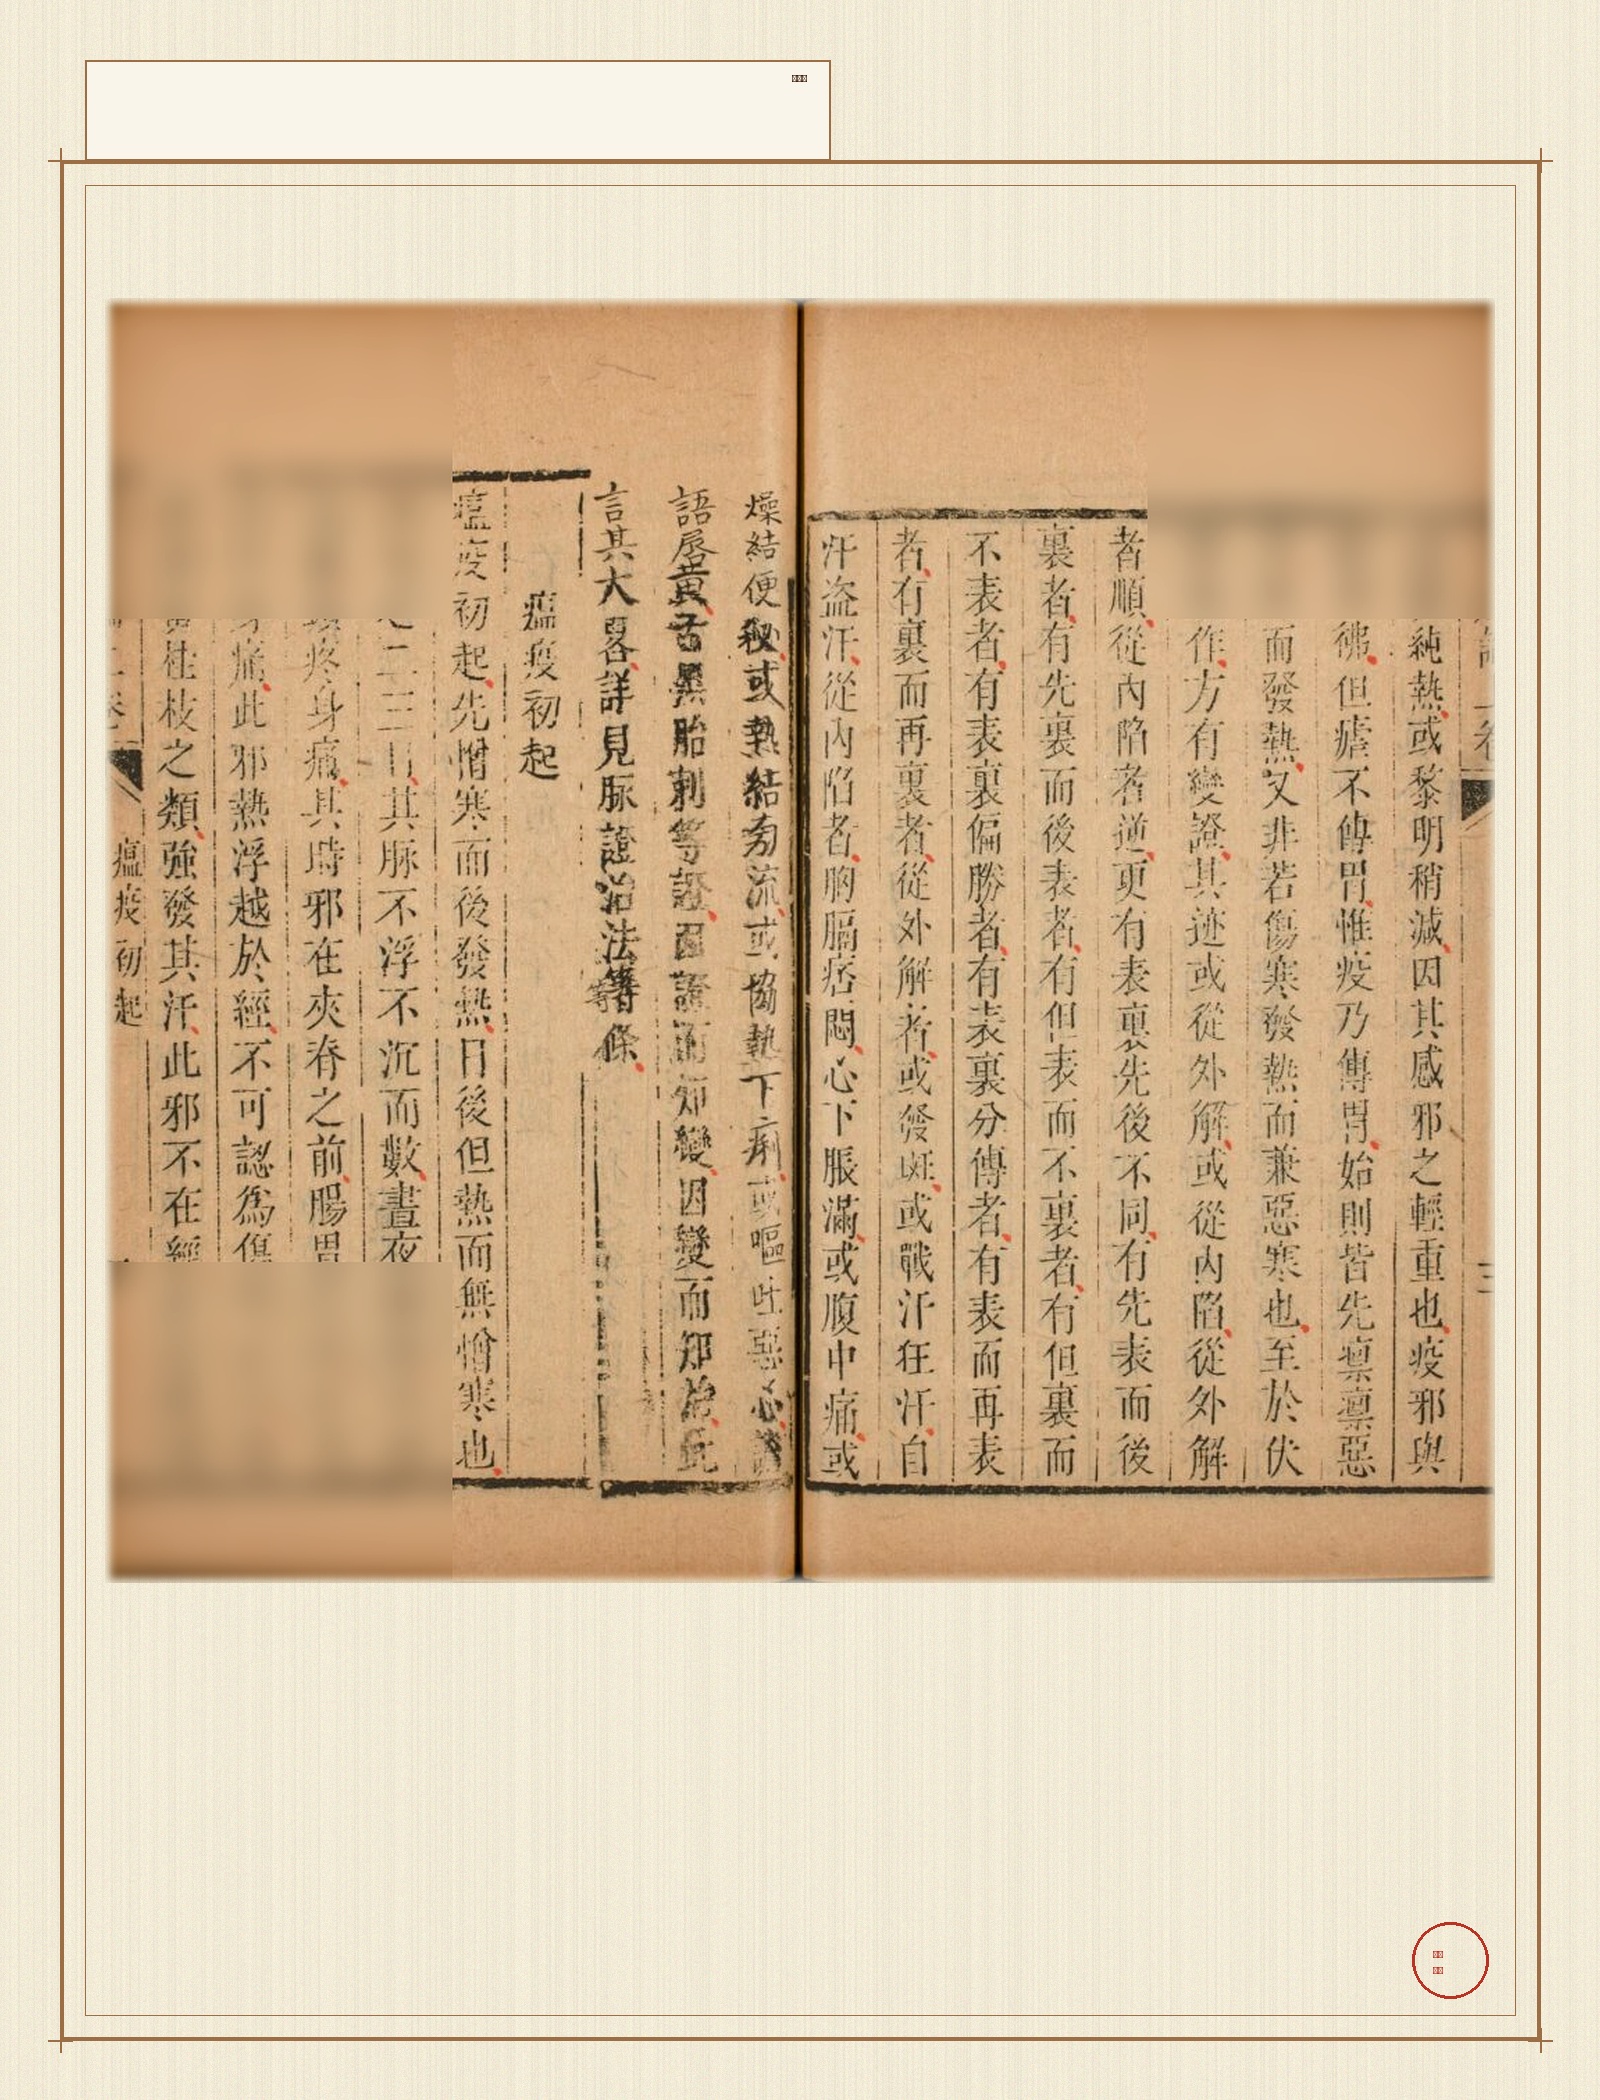 純熱或黎明稍減因其感邪之輕重也疫邪與
彿但瘧不傳胃惟疫乃傳胃始則皆先凜凜惡
而發熱又非若傷寒發熱而兼惡寒也至於伏
作方有變證其迹或從外解或從內陷從外解
者順從內陷者逆更有表裏先後不同有先表而後
裏者有先裏而後表者有但表而不裏者有但裏而
不表者有表裏偏勝者有表裏分傳者有表而再表
者有裏而再裏者從外解者或發斑或戰汗狂汗自
汗盜汗從內陷者胸膈痞悶心下脹滿或腹中痛或
燥結便秘或熱結旁流或協熱下痢或嘔吐惡心譫
語唇黃舌黑胎刺等證因證而知變因變而知治此
言其大畧詳見脉證治法等條
瘟疫初起
瘟疫初起先憎寒而後發熱日後但熱而無憎寒也
二三日其脉不浮不沉而數晝夜
疼身痛其時邪在夾脊之前腸胃
痛此邪熱浮越於經不可認為傷
桂枝之類強發其汗此邪不在經
瘟疫初起